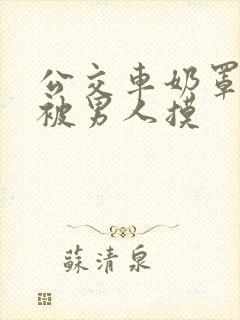 公交車奶罩
被男人摸
蘇清泉